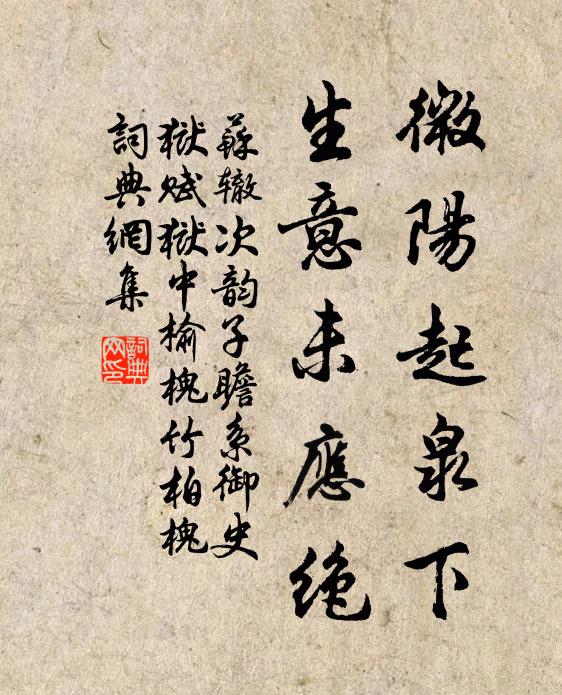 微陽起泉下
生意未應绝
蘇辙次韵子瞻系御史
狱赋狱中榆槐竹柏槐
詞典網集
詞典
网印